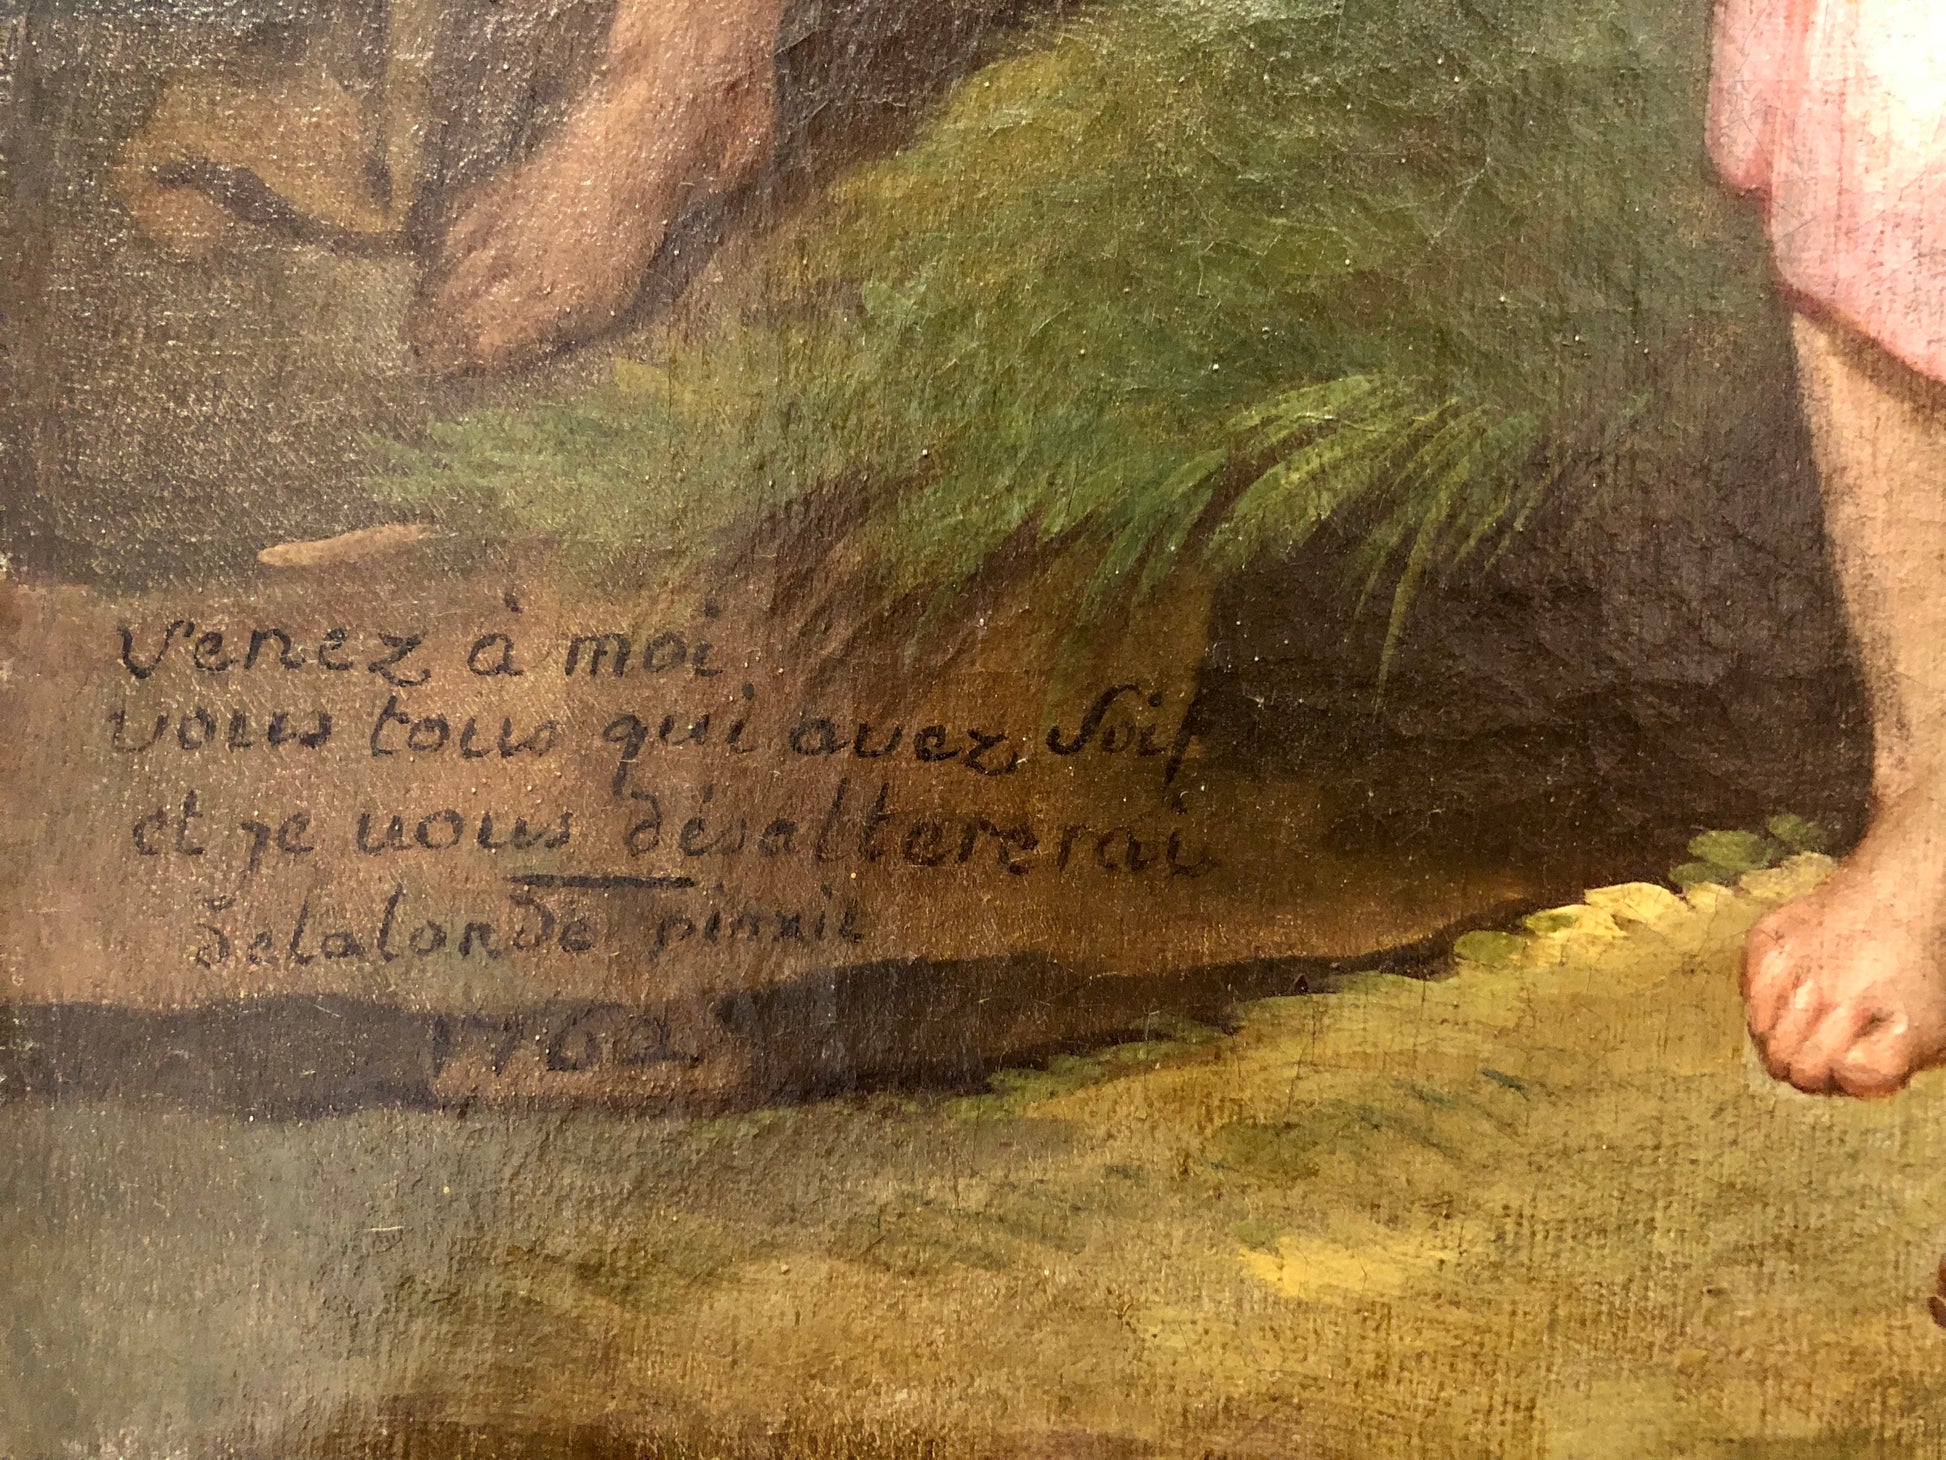 venez à moi
vous tous qui avez Soif
et je vous désaltererai
delalonde pinxit
1762